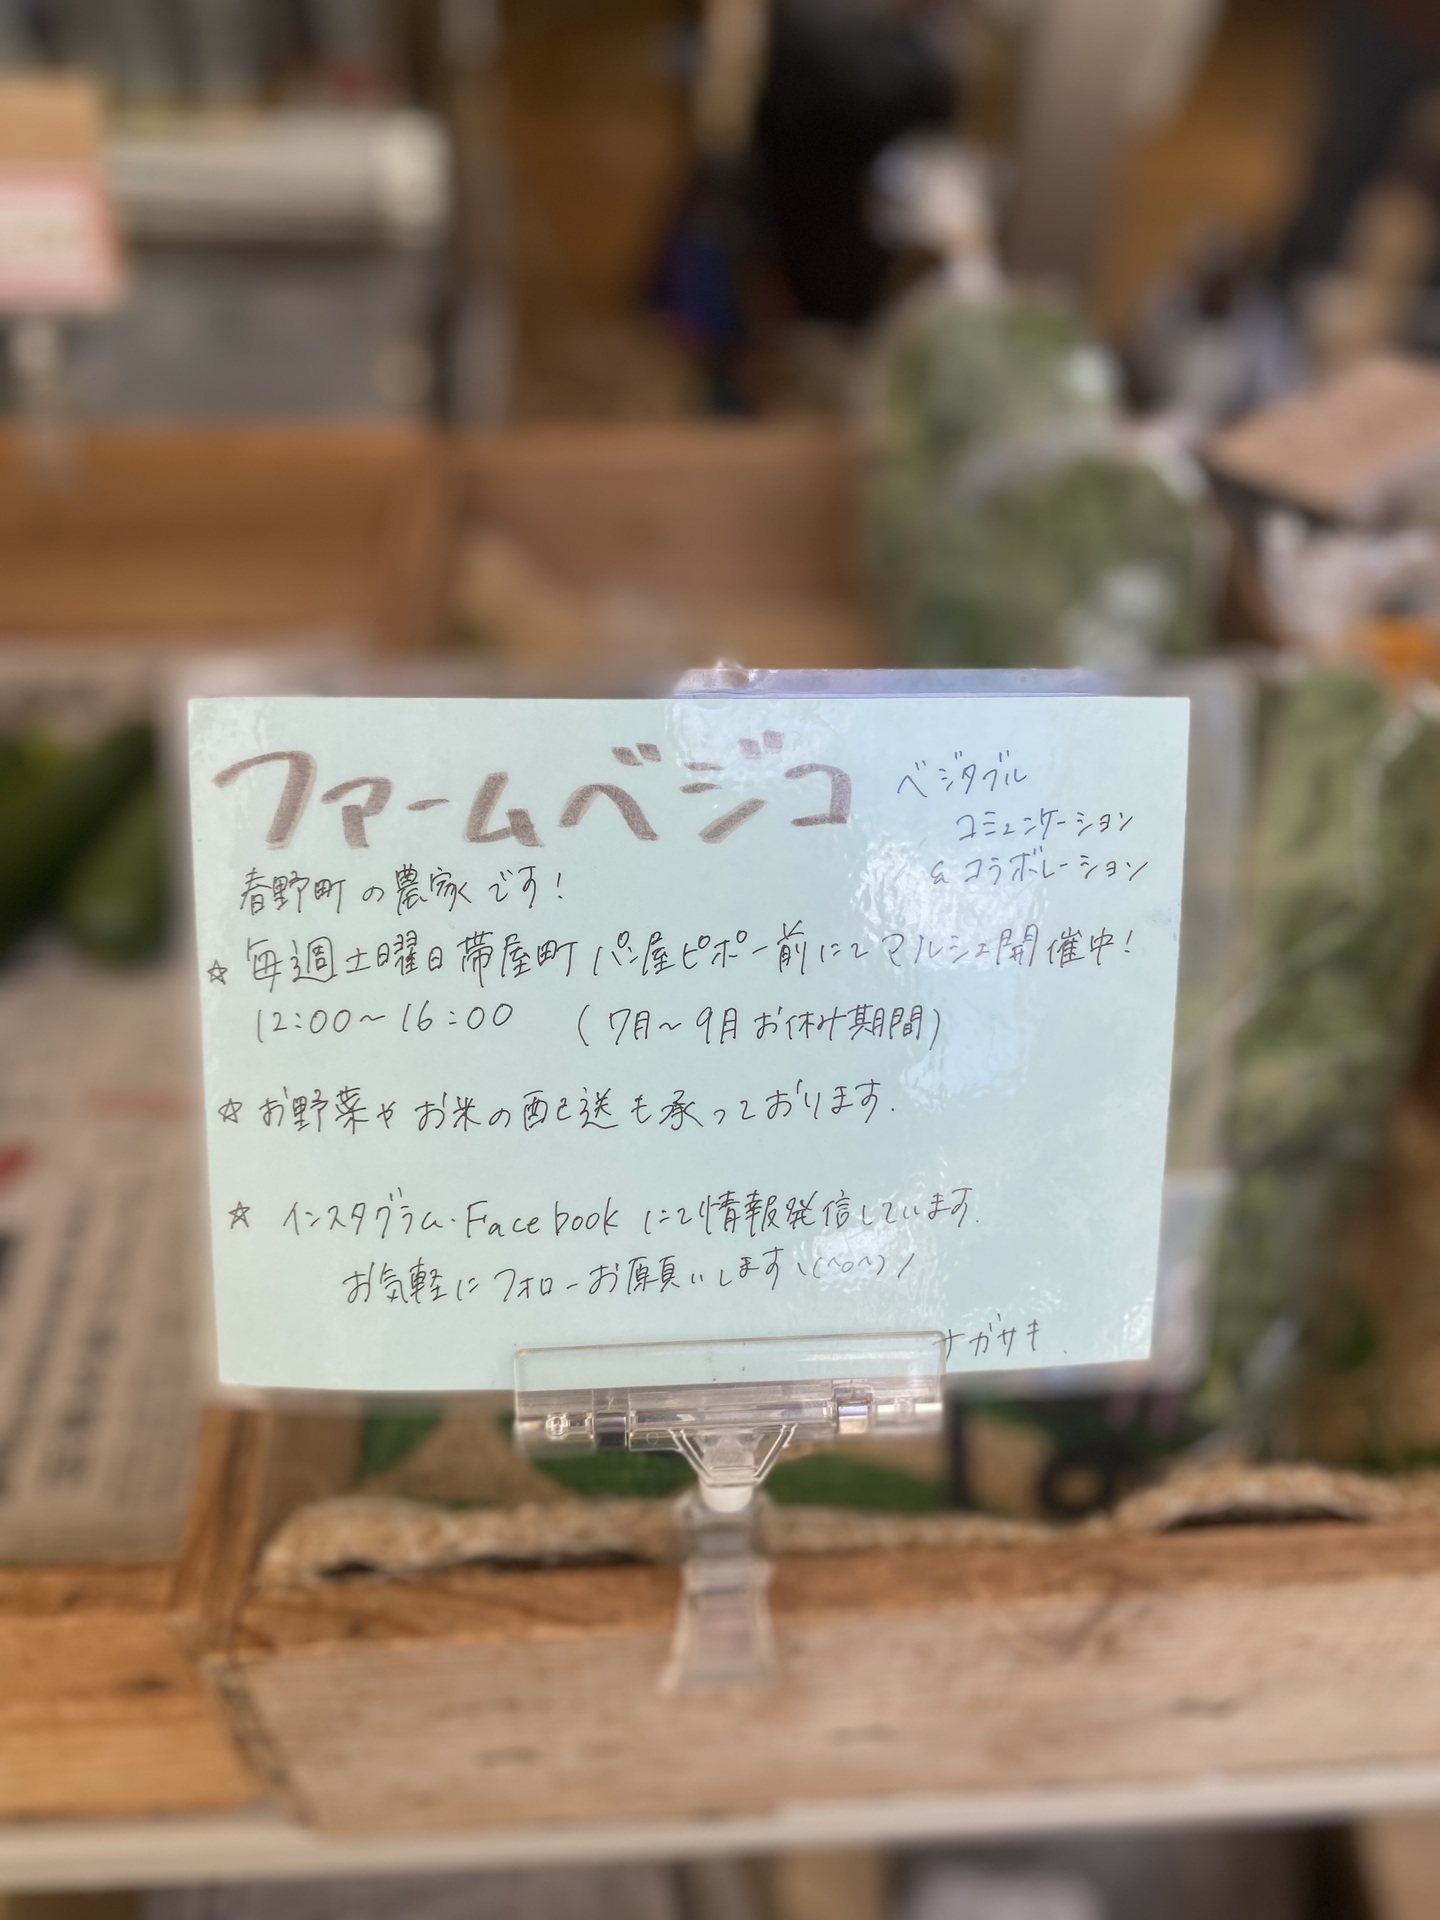 ファームベジコ
ベジタブル
コミュニケーション
& コラボレーション
春野町の農家です!
☆ 毎週土曜日帯屋町パン屋ピポー前にてマルシェ開催中!
12:00～16:00 (7月～9月お休み期間)
☆ お野菜やお米の配送も承っております.
☆ インスタグラム・Facebookにて情報発信しています.
お気軽にフォローお願いします ヽ(^o^)ノ
ナガサキ.